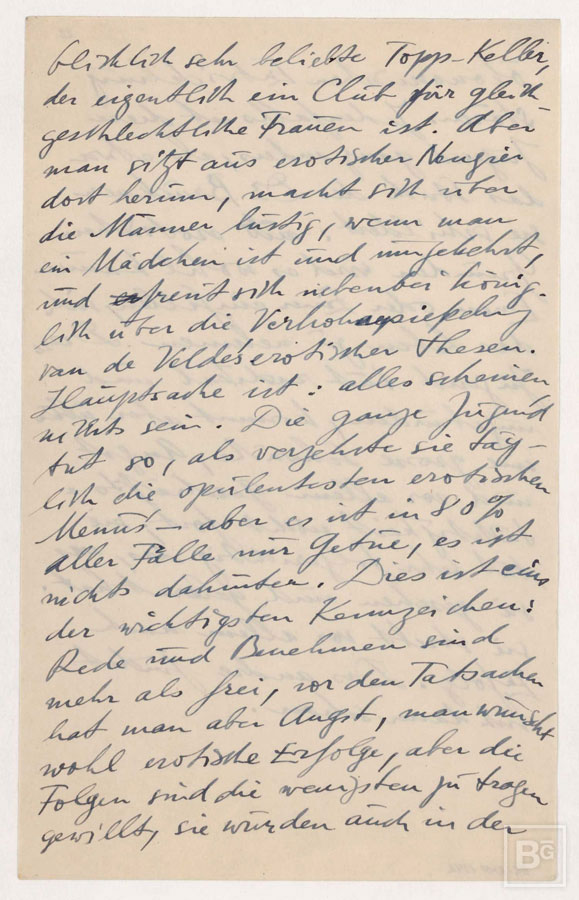 blicklich sehr beliebte Topp-Keller,
der eigentlich ein Club für gleich-
geschlechtliche Frauen ist. Aber
man sitzt aus erotischer Neugier
dort herum, macht sich über
die Männer lustig, wenn man
ein Mädchen ist und umgekehrt,
und freut sich nebenbei könig-
lich über die Verhohnepiepelung
van de Velde's erotischer Thesen.
Hauptsache ist: alles scheinen
nichts sein. Die ganze Jugend
tut so, als verzehrte sie täg-
lich die opulentesten erotischen
Menus – aber es ist in 80%
aller Fälle nur Getue, es ist
nichts dahinter. Dies ist eins
der wichtigsten Kennzeichen:
Rede und Benehmen sind
mehr als frei, vor den Tatsachen
hat man aber Angst, man wünscht
wohl erotische Erfolge, aber die
Folgen sind die wenigsten zu tragen
gewillt, sie würden auch in der
BG